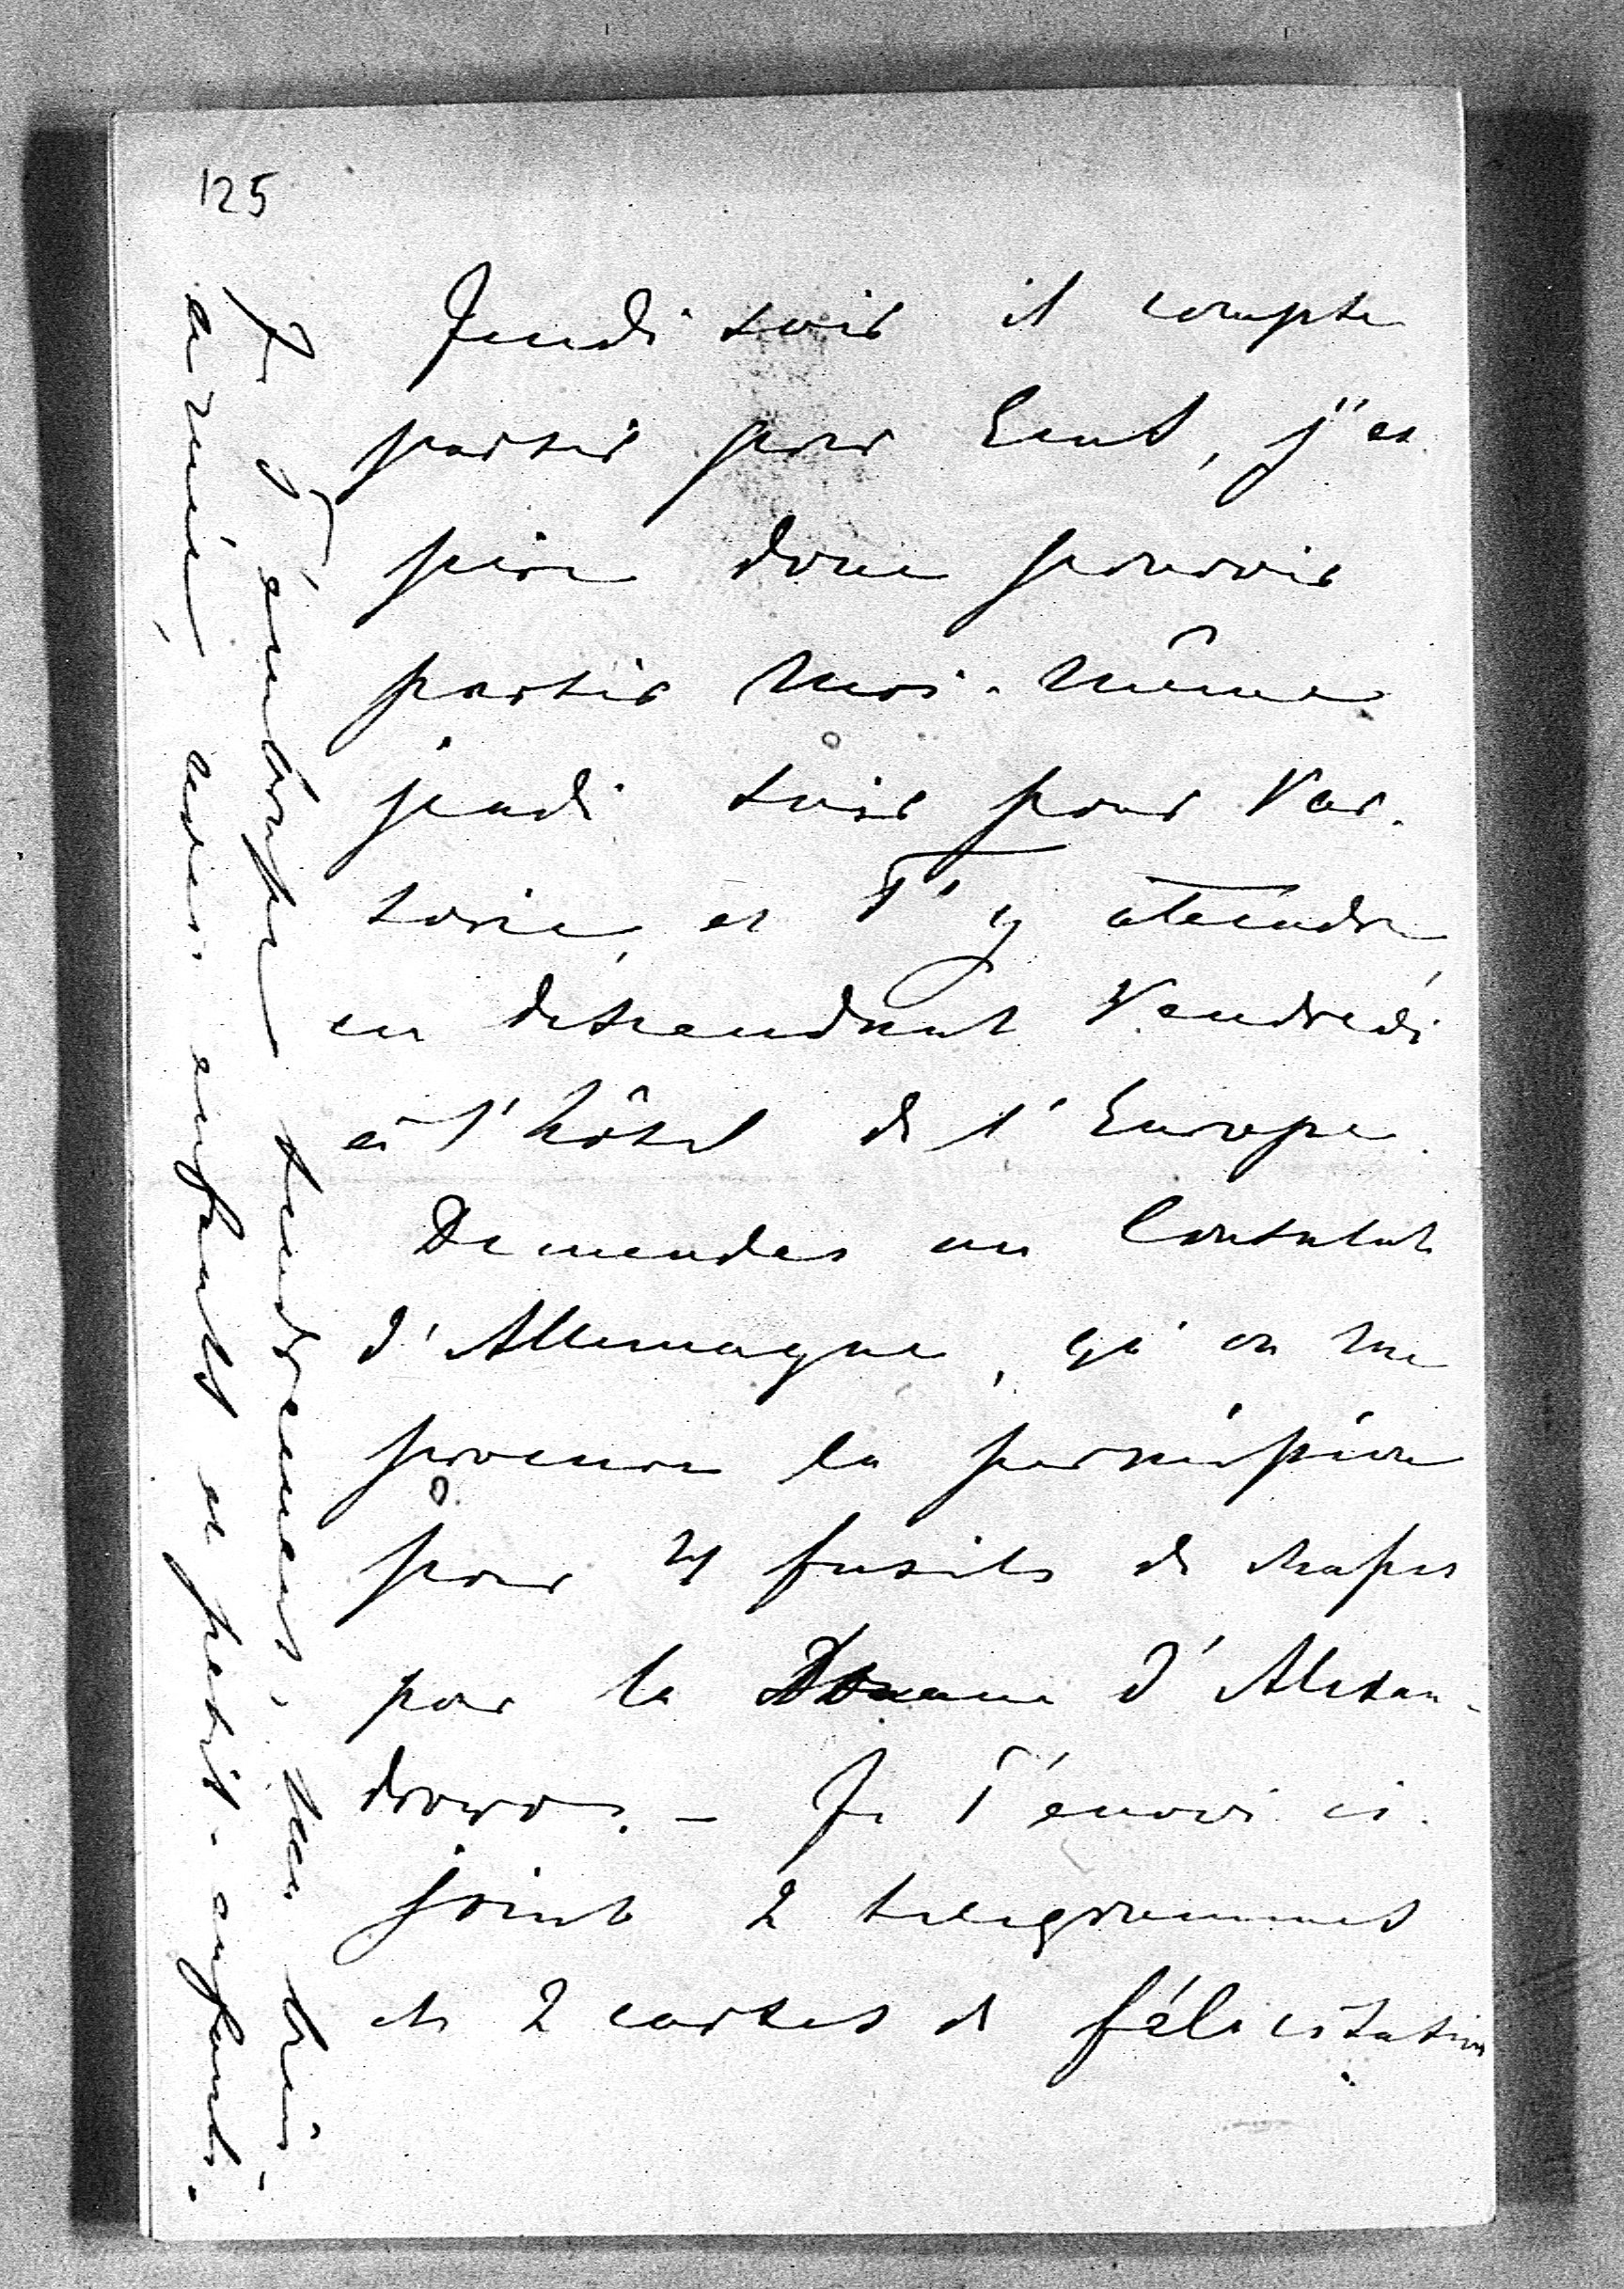 125
Jeudi soir il compte
partir pour Eent, j'es
père donc pouvoir
partir moi-même
jeudi soir pour Var-
sovie, et T'y attendre
en descendant Vendredi
à l'hôtel de l'Europe.
Demandes au Consulat
d'Allemagne, qu'on me
procure la permission
pour 4 fusils de chasse
par la Douane d'Alexan-
drowo. – Je T'envoi ci-
joint 2 telegrammes
et 2 cartes de félicitation
Je T'embrasse tendrement, ma très-
aimée, avec enfants et petits-enfants.